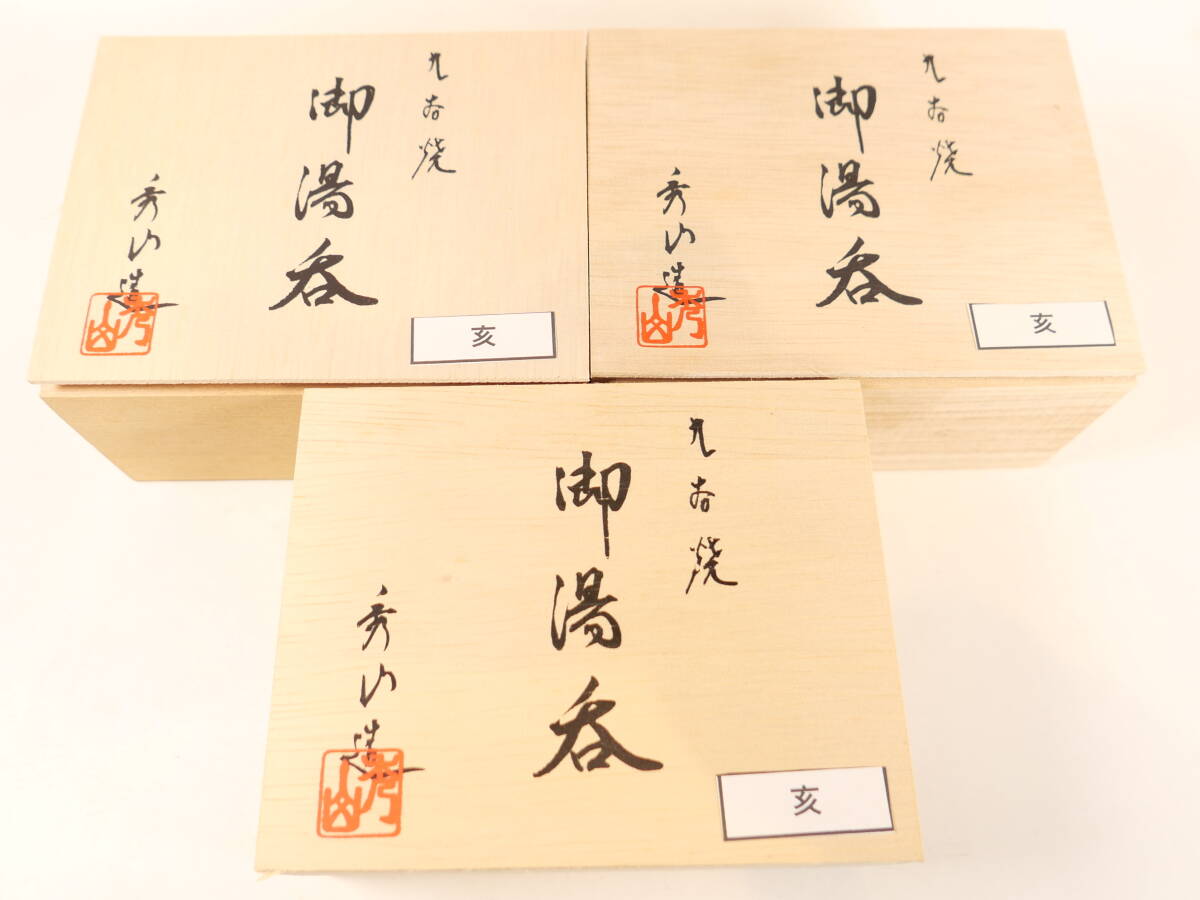 九谷焼
御湯呑
秀山造
秀山
亥
九谷焼
御湯呑
秀山造
秀山
亥
九谷焼
御湯呑
秀山造
秀山
亥